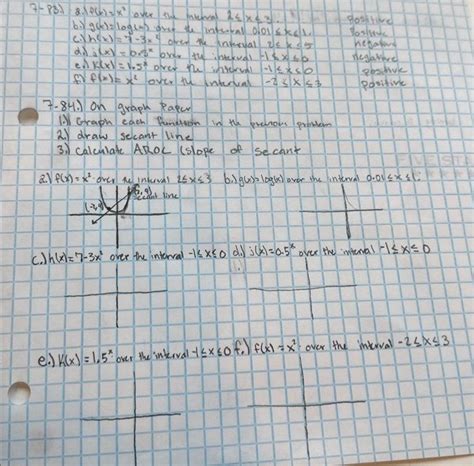 7-83) a.) f(x)=x² over the interval 2≤x≤3. positive
b.) g(x)=log(x) over the interval 0.01≤x≤1. positive
c.) h(x)=7-3x² over the interval 2≤x≤5 negative
d.) j(x)=0.5ˣ over the interval -1≤x≤0 negative
e.) K(x)=1.5ˣ over the interval -1≤x≤0 positive
f.) f(x)=x² over the interval -2≤x≤3 positive
7-84.) On graph Paper
1.) Graph each function in the previous problem
2) draw secant line
3) Calculate AROC (slope of secant
a.) f(x)=x² over the interval 2≤x≤3 b.) g(x)=log(x) over the interval 0.01≤x≤1.
secant line
c.) h(x)=7-3x² over the interval -1≤x≤0 d.) j(x)=0.5ˣ over the interval -1≤x≤0
e.) K(x)=1.5ˣ over the interval -1≤x≤0 f.) f(x)=x² over the interval -2≤x≤3